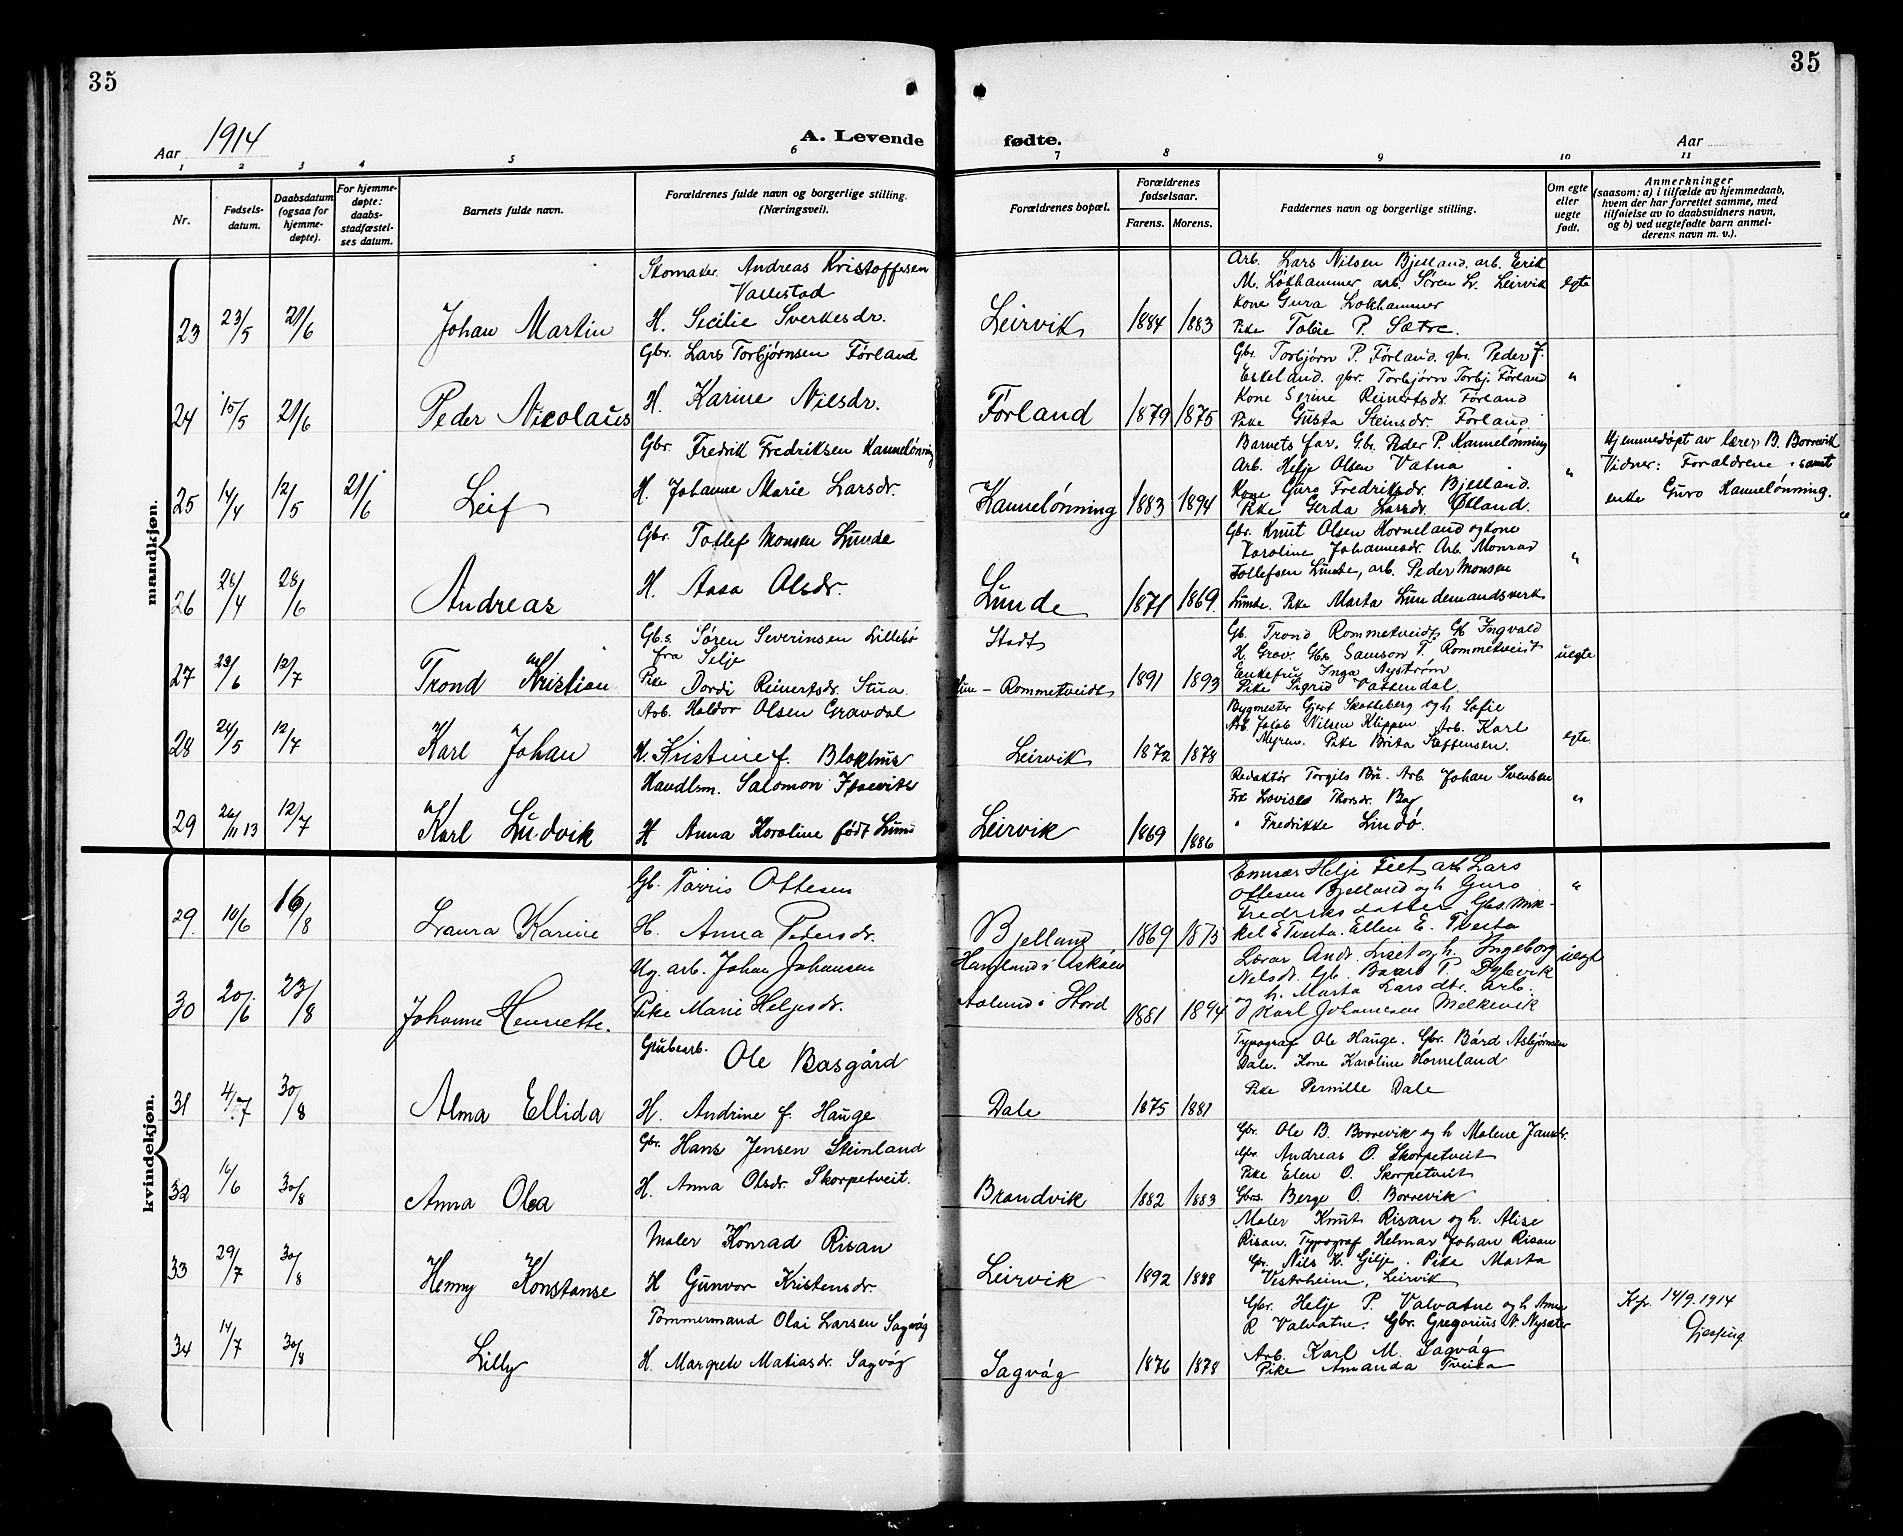 35
35
1914
Aar
A. Levende
fødte.
Aar
1 2 3 4 5 6 7 8 9 10 11
Nr.
Fødsels-datum.
Daabsdatum (ogsaa for hjemme-døpte).
For hjemme-døpte: daabs-stadfæstel-ses datum.
Barnets fulde navn.
Forældrenes fulde navn og borgerlige stilling. (Næringsvei).
Forældrenes bopæl.
Forældrenes fødselsaar.
Farens. Morens.
Faddernes navn og borgerlige stilling.
Om egte eller uegte født.
Anmerkninger (saasom: a) i tilfælde av hjemmedaab, hvem der har forrettet samme, med tilføielse av to daabsvidners navn, og b) ved uegtefødte barn anmel-derens navn m. v.).
mandkjøn.
23 23/5 21/6 Johan Martin
Skomaker Andreas Kristoffersen
Vallestad
H. Secilie Sverkesdr.
Leirvik 1884 1883
Arb. Lars Nilsen Bjelland. arb. Erik
M. Løkhammer, arb. Søren L. Leirvik
Kone Gura Lokhammer
Pike Tobie P. Sætre.
egte
24 15/5 21/6 Peder Nicolaus
Gbr. Lars Torbjørnsen Förland
H. Karine Nilsdr.
Förland 1879 1875
Gbr. Torbjørn P. Förland. gbr. Peder J.
Eskeland. gbr. Torbjørn Torbj. Förland
Kone Serine Reinertsdr. Förland
Pike Gusta Steinsdr. Förland.
"
25 14/4 12/5 21/6 Leif
Gbr. Fredrik Fredriksen Kannelønning
H. Johanne Marie Larsdr.
Kannelønning 1883 1894
Barnets far. Gbr. Peder P. Kannelønning
Arb. Helje Olsen Vatna
Kone Guro Fredriksdr. Bjelland.
Pike Gerda Larsdr. Øtland.
"
Hjemmedøpt av lærer B. Borrevik
Vidner: Forældrene samt
enke Guro Kannelønning.
26 26/4 28/6 Andreas
Gbr. Tollef Monsen Lunde
H. Aasa Olsdr.
Lunde 1871 1869
Gbr. Knut Olsen Horneland og kone
Karoline Johannesdr. Arb. Monrad
Tollefsen Lunde, arb. Peder Monsen
Lunde. Pike Marta Lundemandsverk
"
27 23/6 12/7 Trond Kristian
Gb.s. Søren Severinsen Lillebø
fra Selje
Pike Dordi Reinertsdr. Stua.
Stadt
Hun – Rommetveidt 1891 1893
Gb. Trond Rommetveidt Gb Ingvald
H. Grov. Gbs Samson T. Rommetveit
Enkefru Inga Nystrøm
Pike Sigrid Vattendal.
uegte
28 24/5 12/7 Karl Johan
Arb. Haldor Olsen Gravdal
H. Kristine f. Blokhus
Leirvik 1872 1878
Bygmester Gjert Skotteberg og h. Sofie
Arb. Jakob Nilsen Klippen Arb. Karl
Myren. Pike Brita Steffensen.
egte
29 26/11 13 12/7 Karl Ludvik
Handlsm. Salomon
H Anna Karoline født Lund
Leirvik 1869 1886
Redaktør Torgils Bu. Arb. Johan Svendsen
Frk Lovise Thorsdr. Bag
" Fredrikke Lindø.
"
kvindekjøn.
29. 10/6 16/8 Laura Karine
Gb. Tørris Ottesen
H. Anna Pedersdr.
Bjelland 1869 1873
Emisær Helje Teet arb Lars
Ottesen Bjelland og h Guro
Fredriksdatter Gbs. Mik-
kel E Tveita. Ellen E. Tveita
"
30 20/6 23/8 Johanne Henriette.
Ug. arb. Johan Johansen
Pike Marie Heljesdr.
Hauglund i Askøen
Aalund i Stord 1881 1894
Lærar Andr. Liset og h. Ingeborg
Nilsdr. Gb. Baard T. Dybvik
og h. Marta Larsdtr. Arb.
Karl Johannesen Melkevik
uegte
31 4/7 30/8 Alma Ellida
Grubearb. Ole Basgård
H. Andrine f. Hauge
Dale 1875 1881
Typograf Ole Hauge. Gbr. Bård Asbjørnsen
Dale. Kone Karoline Horneland
Pike Pernille Dale
32 16/6 30/8 Anna Olea
Gbr. Hans Jensen Steinland
H. Anna Olsdr. Skorpetveit.
Brandvik 1882 1883
Gbr. Ole B. Borrevik og h Malene Jansdr.
Gbr. Andreas O. Skorpetveit
Pike Elen O. Skorpetveit
Gbrs. Berge O. Borrevik
33 29/7 30/8 Henny Konstanse
Maler Konrad Risan
H Gunvor Kristensdr.
Leirvik 1892 1888
Maler Knut Risan og h. Alise
Risan. Typograf Helmar Johan Risan
Gbr. Nils K. Gilje. Pike Marta
Vestrheim, Leirvik
34 14/7 30/8 Lilly
Tømmermand Olai Larsen Sagvåg
H. Margrete Matiasdr. Sagvåg
Sagvåg 1876 1878
Gbr. Helje P. Valvatne og h Anna
R Valvatne. Gbr. Gregorius N. Nysæter
Arb. Karl M. Sagvåg
Pike Amanda Tveita
Kpr. 14/9. 1914
Gjessing